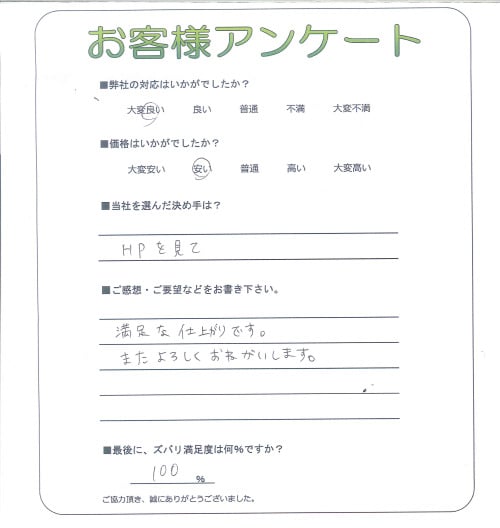 お客様アンケート
■弊社の対応はいかがでしたか？
大変良い 良い 普通 不満 大変不満
■価格はいかがでしたか？
大変安い 安い 普通 高い 大変高い
■当社を選んだ決め手は？
HPを見て
■ご感想・ご要望などをお書き下さい。
満足な仕上がりです。
またよろしくおねがいします。
■最後に、ズバリ満足度は何%ですか？
100 %
ご協力頂き、誠にありがとうございました。